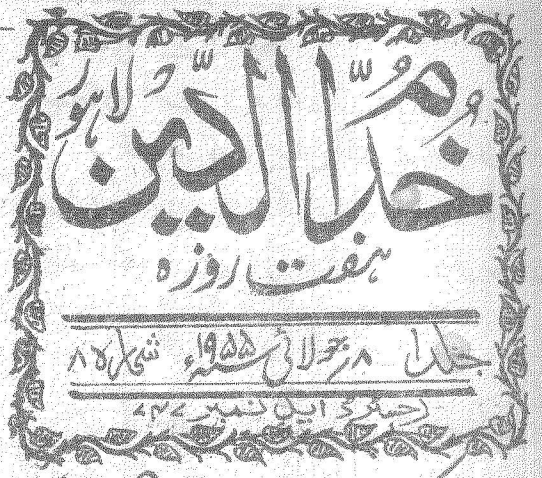 خُدّامُ الدّین لاہور
ہفت روزہ
جلد ۱ ۸ جولائی سنہ ۱۹۵۵ء شمارہ ۸
رجسٹرڈ ایل نمبر ۷۴۷